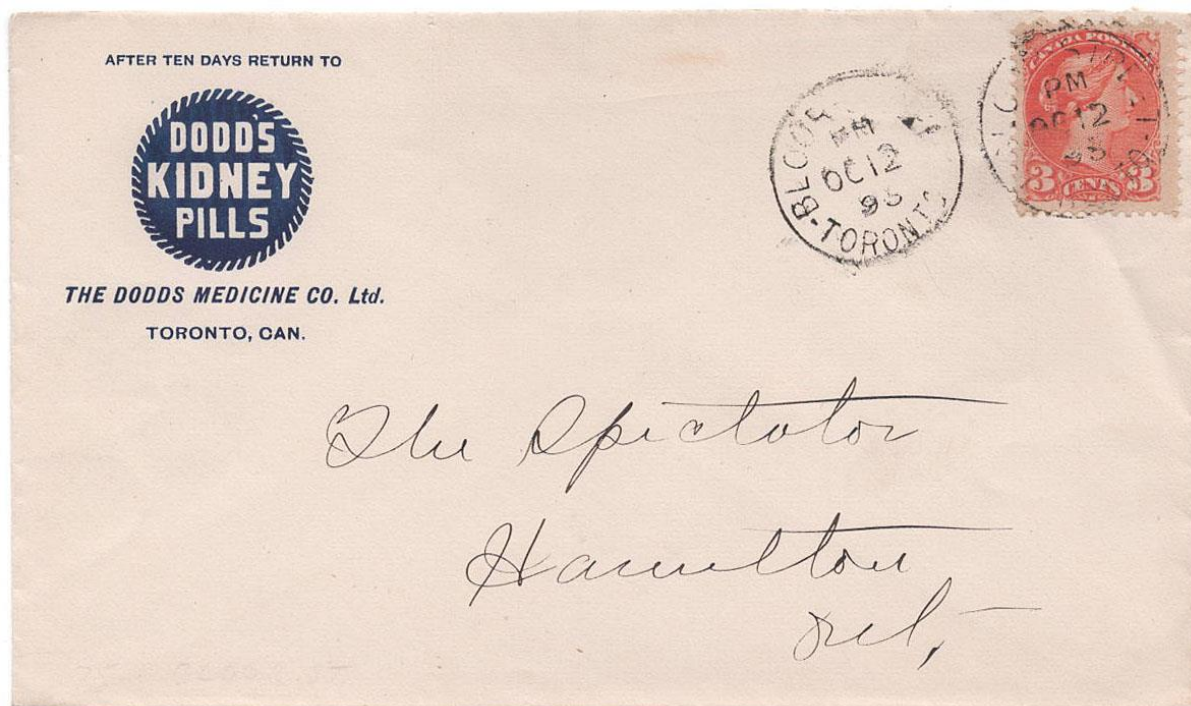 AFTER TEN DAYS RETURN TO
DODD'S
KIDNEY
PILLS
THE DODDS MEDICINE CO. Ltd.
TORONTO, CAN.
BLOOR
PM
OC 12
95
TORONTO
CANADA POSTAGE
PM
OC 12
95
3 CENTS 3
The Spectator
Hamilton
Ont,